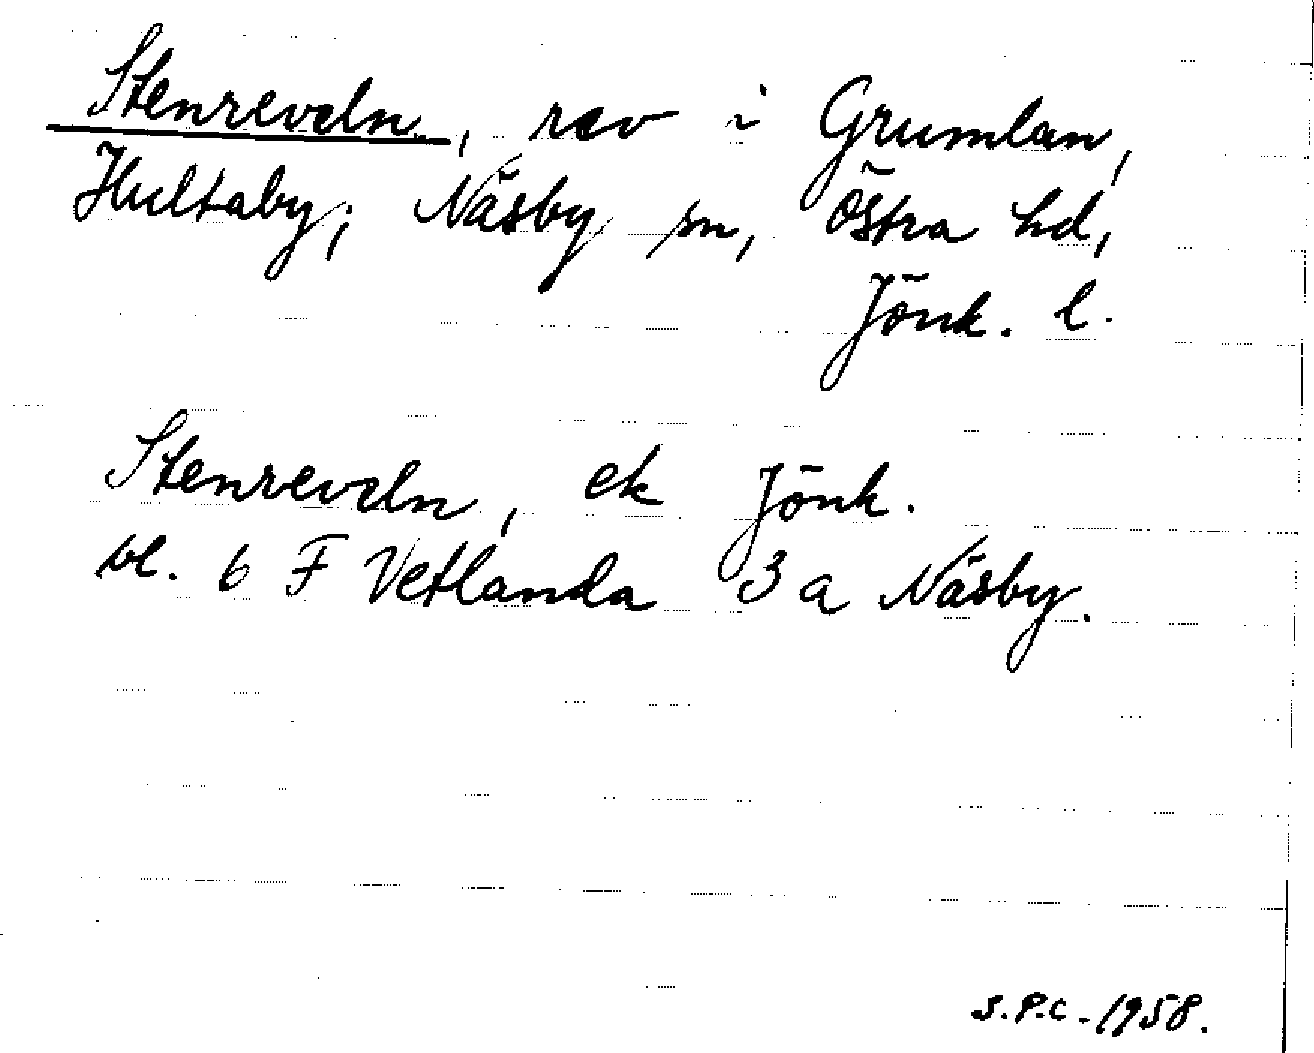 Stenreveln, rev i Grumlan,
Hultaby, Näsby sn, Östra hd,
Jönk. l.
Stenreveln, ek Jönk.
bl. 6 F Vetlanda 3 a Näsby.
S.P.C. 1958.